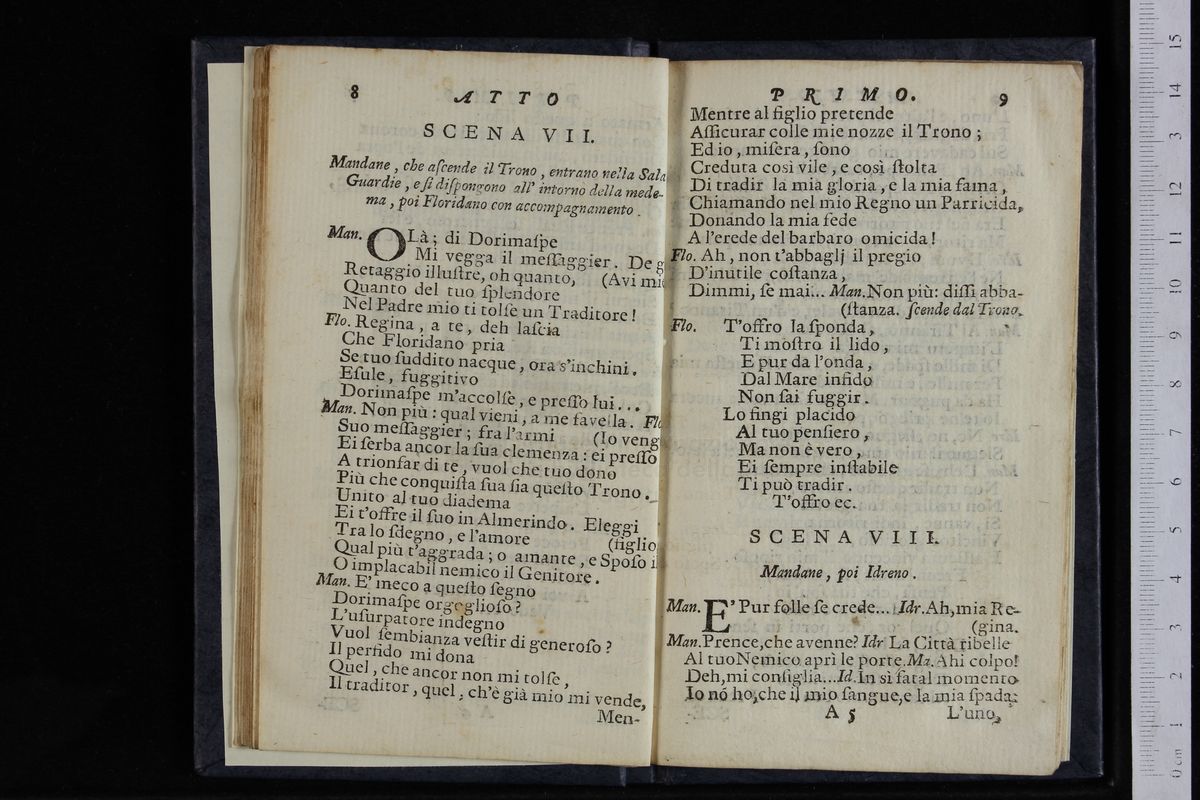 8 ATTO
SCENA VII.
Mandane, che aſcende il Trono, entrano nella Sala
Guardie, e ſi diſpongono all' intorno della mede-
ma, poi Floridano con accompagnamento.
Man. OLà; di Dorimaſpe
Mi vegga il meſſaggier. De g
Retaggio illuſtre, oh quanto, (Avi mie
Quanto del tuo ſplendore
Nel Padre mio ti tolſe un Traditore!
Flo. Regina, a te, deh laſcia
Che Floridano pria
Se tuo ſuddito nacque, ora s'inchini.
Eſule, fuggitivo
Dorimaſpe m'accolſe, e preſſo lui...
Man. Non più: qual vieni, a me favella. Flo
Suo meſſaggier; fra l'armi (Io veng
Ei ſerba ancor la ſua clemenza: ei preſſo
A trionfar di te, vuol che tuo dono
Più che conquiſta ſua ſia queſto Trono.
Unito al tuo diadema
Ei t'offre il ſuo in Almerindo. Eleggi
Tra lo ſdegno, e l'amore (figlio
Qual più t'aggrada; o amante, e Spoſo il
O implacabil nemico il Genitore.
Man. E' meco a queſto ſegno
Dorimaſpe orgoglioſo?
L'uſurpatore indegno
Vuol ſembianza veſtir di generoſo?
Il perfido mi dona
Quel, che ancor non mi tolſe,
Il traditor, quel, ch'è già mio mi vende,
Men-
PRIMO. 9
Mentre al figlio pretende
Aſſicurar colle mie nozze il Trono;
Ed io, miſera, ſono
Creduta così vile, e così ſtolta
Di tradir la mia gloria, e la mia fama,
Chiamando nel mio Regno un Parricida,
Donando la mia fede
A l'erede del barbaro omicida!
Flo. Ah, non t'abbaglj il pregio
D'inutile coſtanza,
Dimmi, ſe mai... Man. Non più: diſſi abba-
(ſtanza. ſcende dal Trono.
Flo. T'offro la ſponda,
Ti moſtro il lido,
E pur da l'onda,
Dal Mare infido
Non ſai fuggir.
Lo fingi placido
Al tuo penſiero,
Ma non è vero,
Ei ſempre inſtabile
Ti può tradir.
T'offro ec.
SCENA VIII.
Mandane, poi Idreno.
Man. E' Pur folle ſe crede... Idr. Ah, mia Re-
(gina.
Man. Prence, che avenne? Idr La Città ribelle
Al tuo Nemico aprì le porte. Ma. Ahi colpo!
Deh, mi conſiglia... Id. In sì fatal momento
Io nõ ho, che il mio ſangue, e la mia ſpada:
A 5 L'uno,